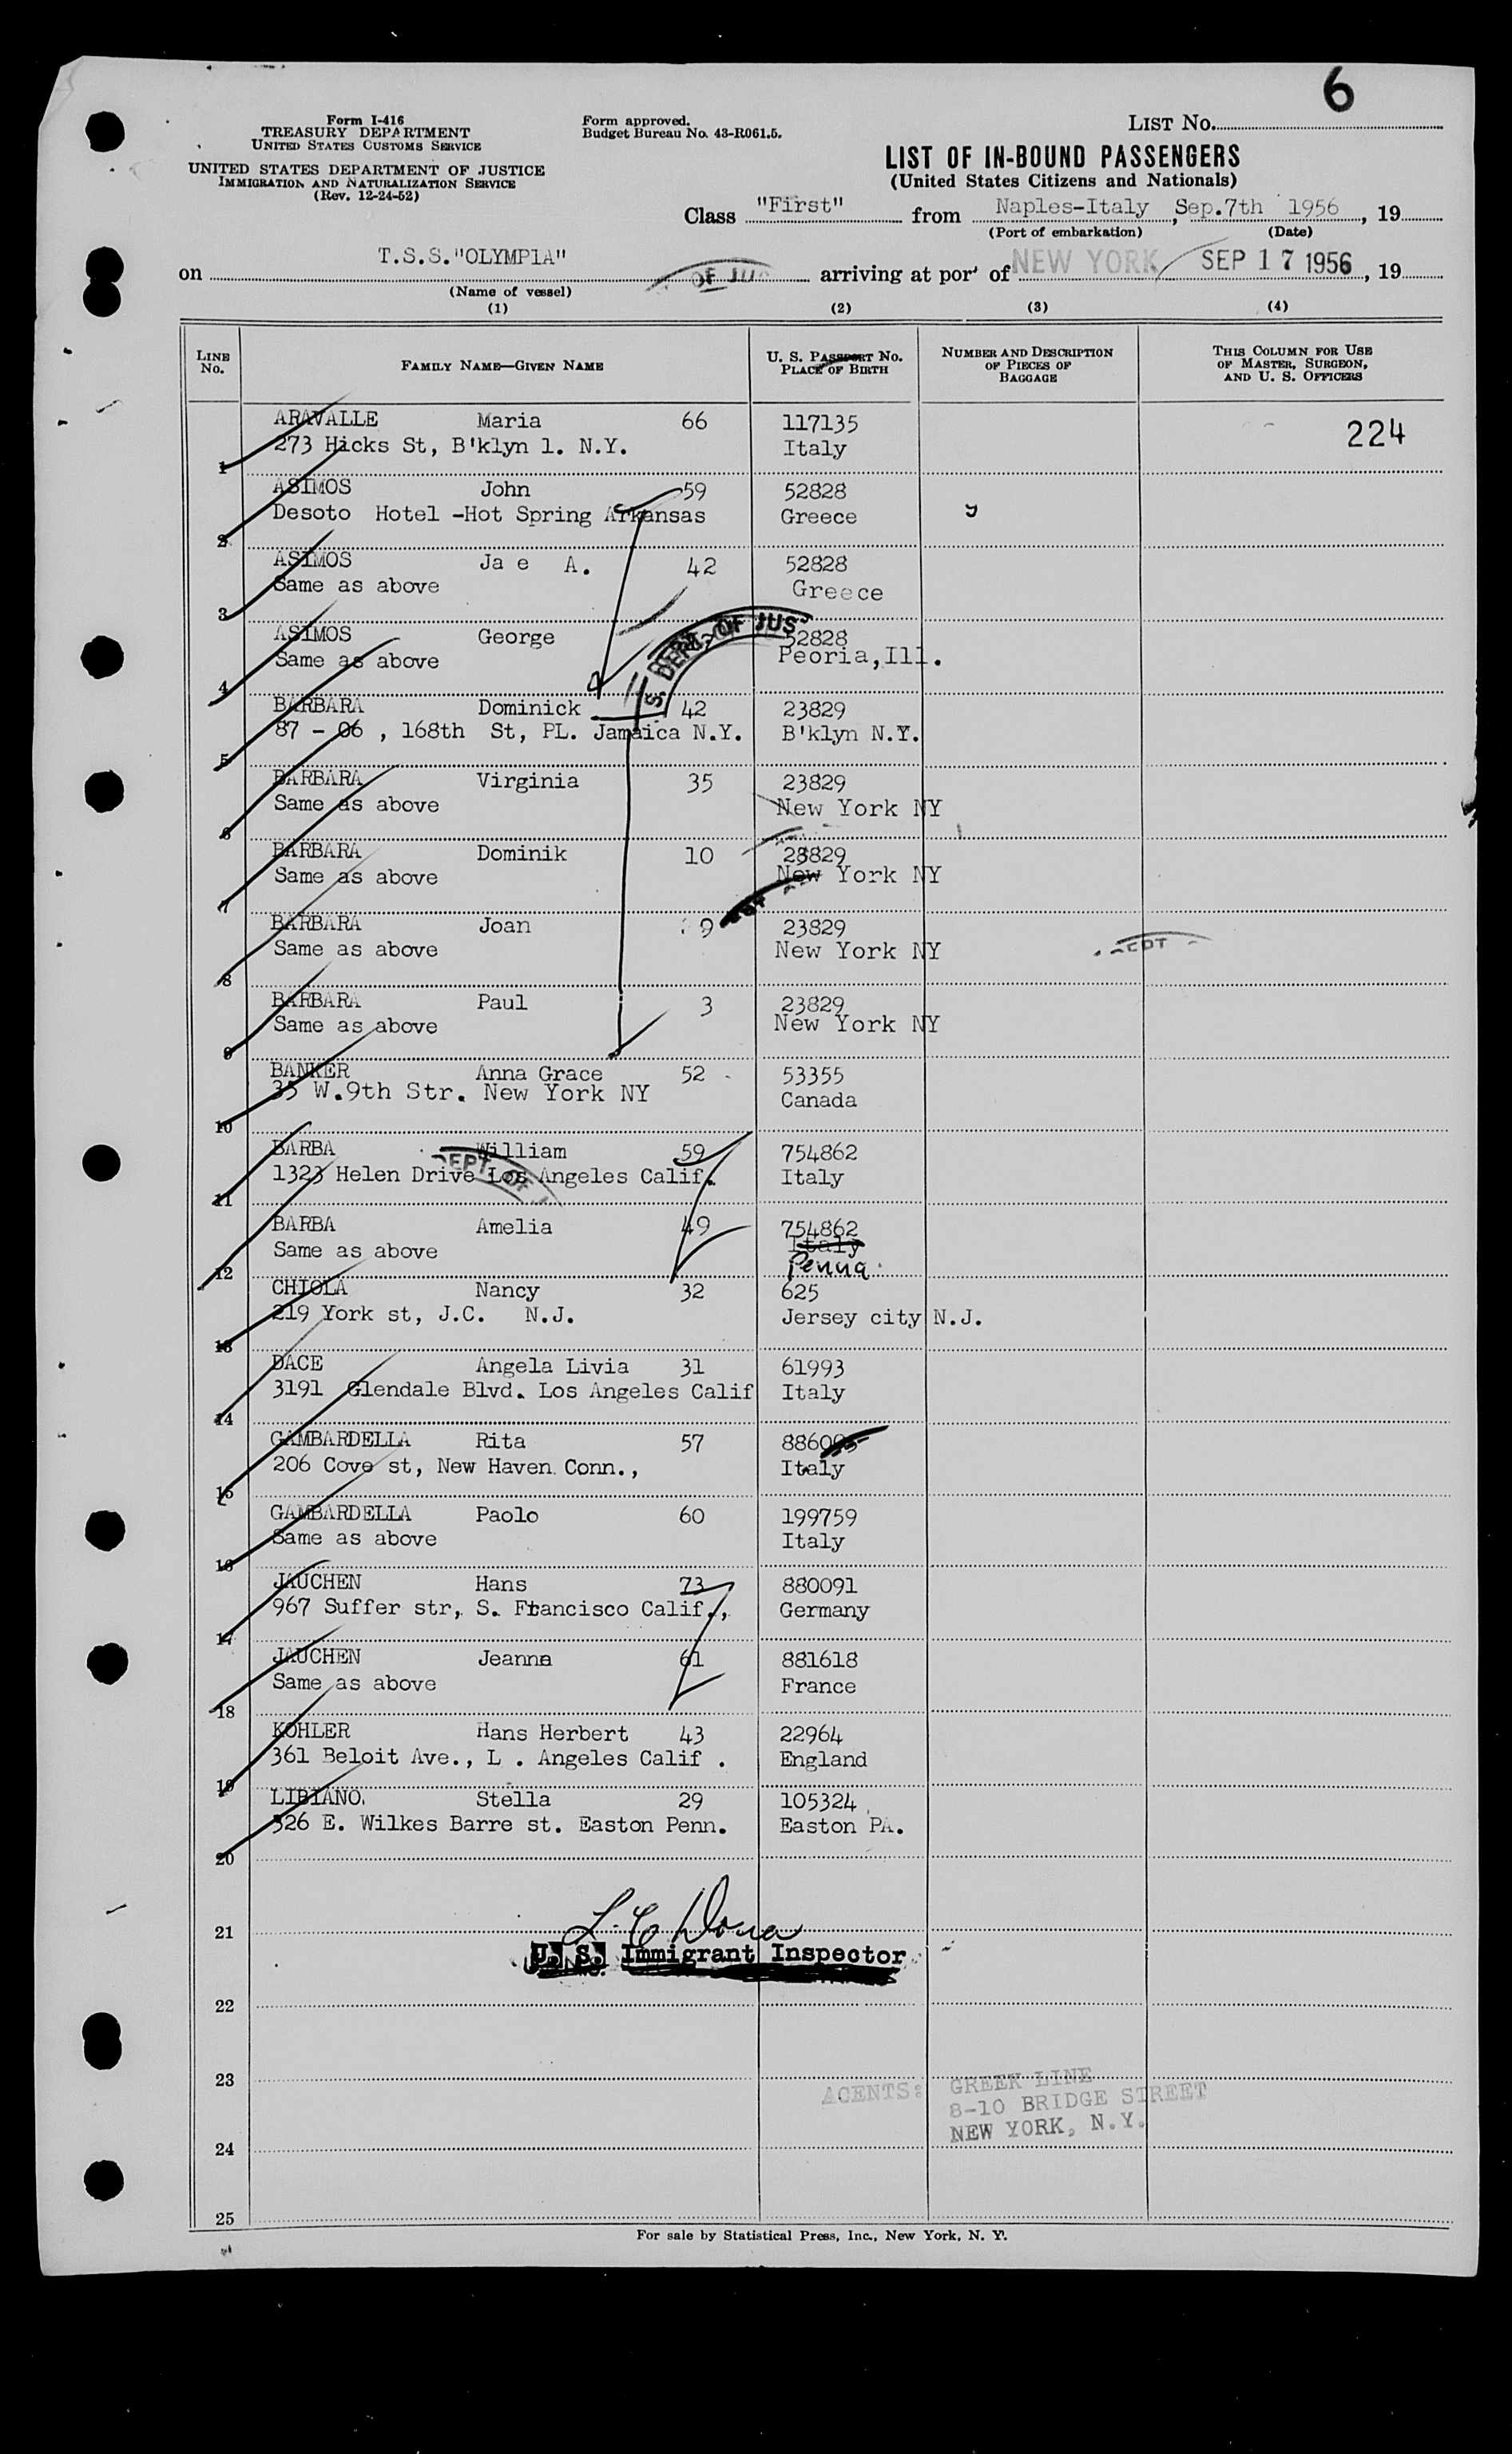 6
Form I-416
TREASURY DEPARTMENT
UNITED STATES CUSTOMS SERVICE
UNITED STATES DEPARTMENT OF JUSTICE
IMMIGRATION AND NATURALIZATION SERVICE
(Rev. 12-24-52)
Form approved.
Budget Bureau No. 43-R061.5.
LIST No.
LIST OF IN-BOUND PASSENGERS
(United States Citizens and Nationals)
Class "First" from Naples-Italy, Sep.7th 1956, 19
(Port of embarkation) (Date)
on T.S.S."OLYMP1A" OF JUS arriving at por' of NEW YORK SEP 17 1956, 19
(Name of vessel)
(1) (2) (3) (4)
LINE No. FAMILY NAME—GIVEN NAME U. S. PASSPORT No. PLACE OF BIRTH NUMBER AND DESCRIPTION OF PIECES OF BAGGAGE THIS COLUMN FOR USE OF MASTER, SURGEON, AND U. S. OFFICERS
ARAVALLE Maria 66 117135 224
1 273 Hicks St, B'klyn 1. N.Y. Italy
ASIMOS John 59 52828
2 Desoto Hotel -Hot Spring Arkansas Greece
ASIMOS Ja e A. 42 52828
3 Same as above Greece
ASIMOS George 52828
4 Same as above Peoria,Ill.
S. DEPT. OF JUS
BARBARA Dominick 42 23829
5 87 - 06 , 168th St, PL. Jamaica N.Y. B'klyn N.Y.
BARBARA Virginia 35 23829
6 Same as above New York NY
BARBARA Dominik 10 23829
7 Same as above New York NY
BARBARA Joan 9 23829
8 Same as above New York NY
DEPT
BARBARA Paul 3 23829
9 Same as above New York NY
BANKER Anna Grace 52 53355
10 35 W.9th Str. New York NY Canada
BARBA William 59 754862
11 1323 Helen Drive Los Angeles Calif. Italy
DEPT. OF J
BARBA Amelia 49 754862
12 Same as above Italy
Penna.
CHIOLA Nancy 32 625
13 219 York st, J.C. N.J. Jersey city N.J.
DACE Angela Livia 31 61993
14 3191 Glendale Blvd. Los Angeles Calif Italy
GAMBARDELLA Rita 57
15 206 Cove st, New Haven Conn., Italy
GAMBARDELLA Paolo 60 199759
16 Same as above Italy
JAUCHEN Hans 73 880091
17 967 Suffer str, S. Francisco Calif., Germany
JAUCHEN Jeanne 61 881618
18 Same as above France
KOHLER Hans Herbert 43 22964
19 361 Beloit Ave., L . Angeles Calif . England
LIBIANO Stella 29 105324
20 326 E. Wilkes Barre st. Easton Penn. Easton PA.
21
U. S. Immigrant Inspector
22
23
AGENTS: GREEK LINE
8-10 BRIDGE STREET
NEW YORK, N.Y.
24
25
For sale by Statistical Press, Inc., New York, N. Y.